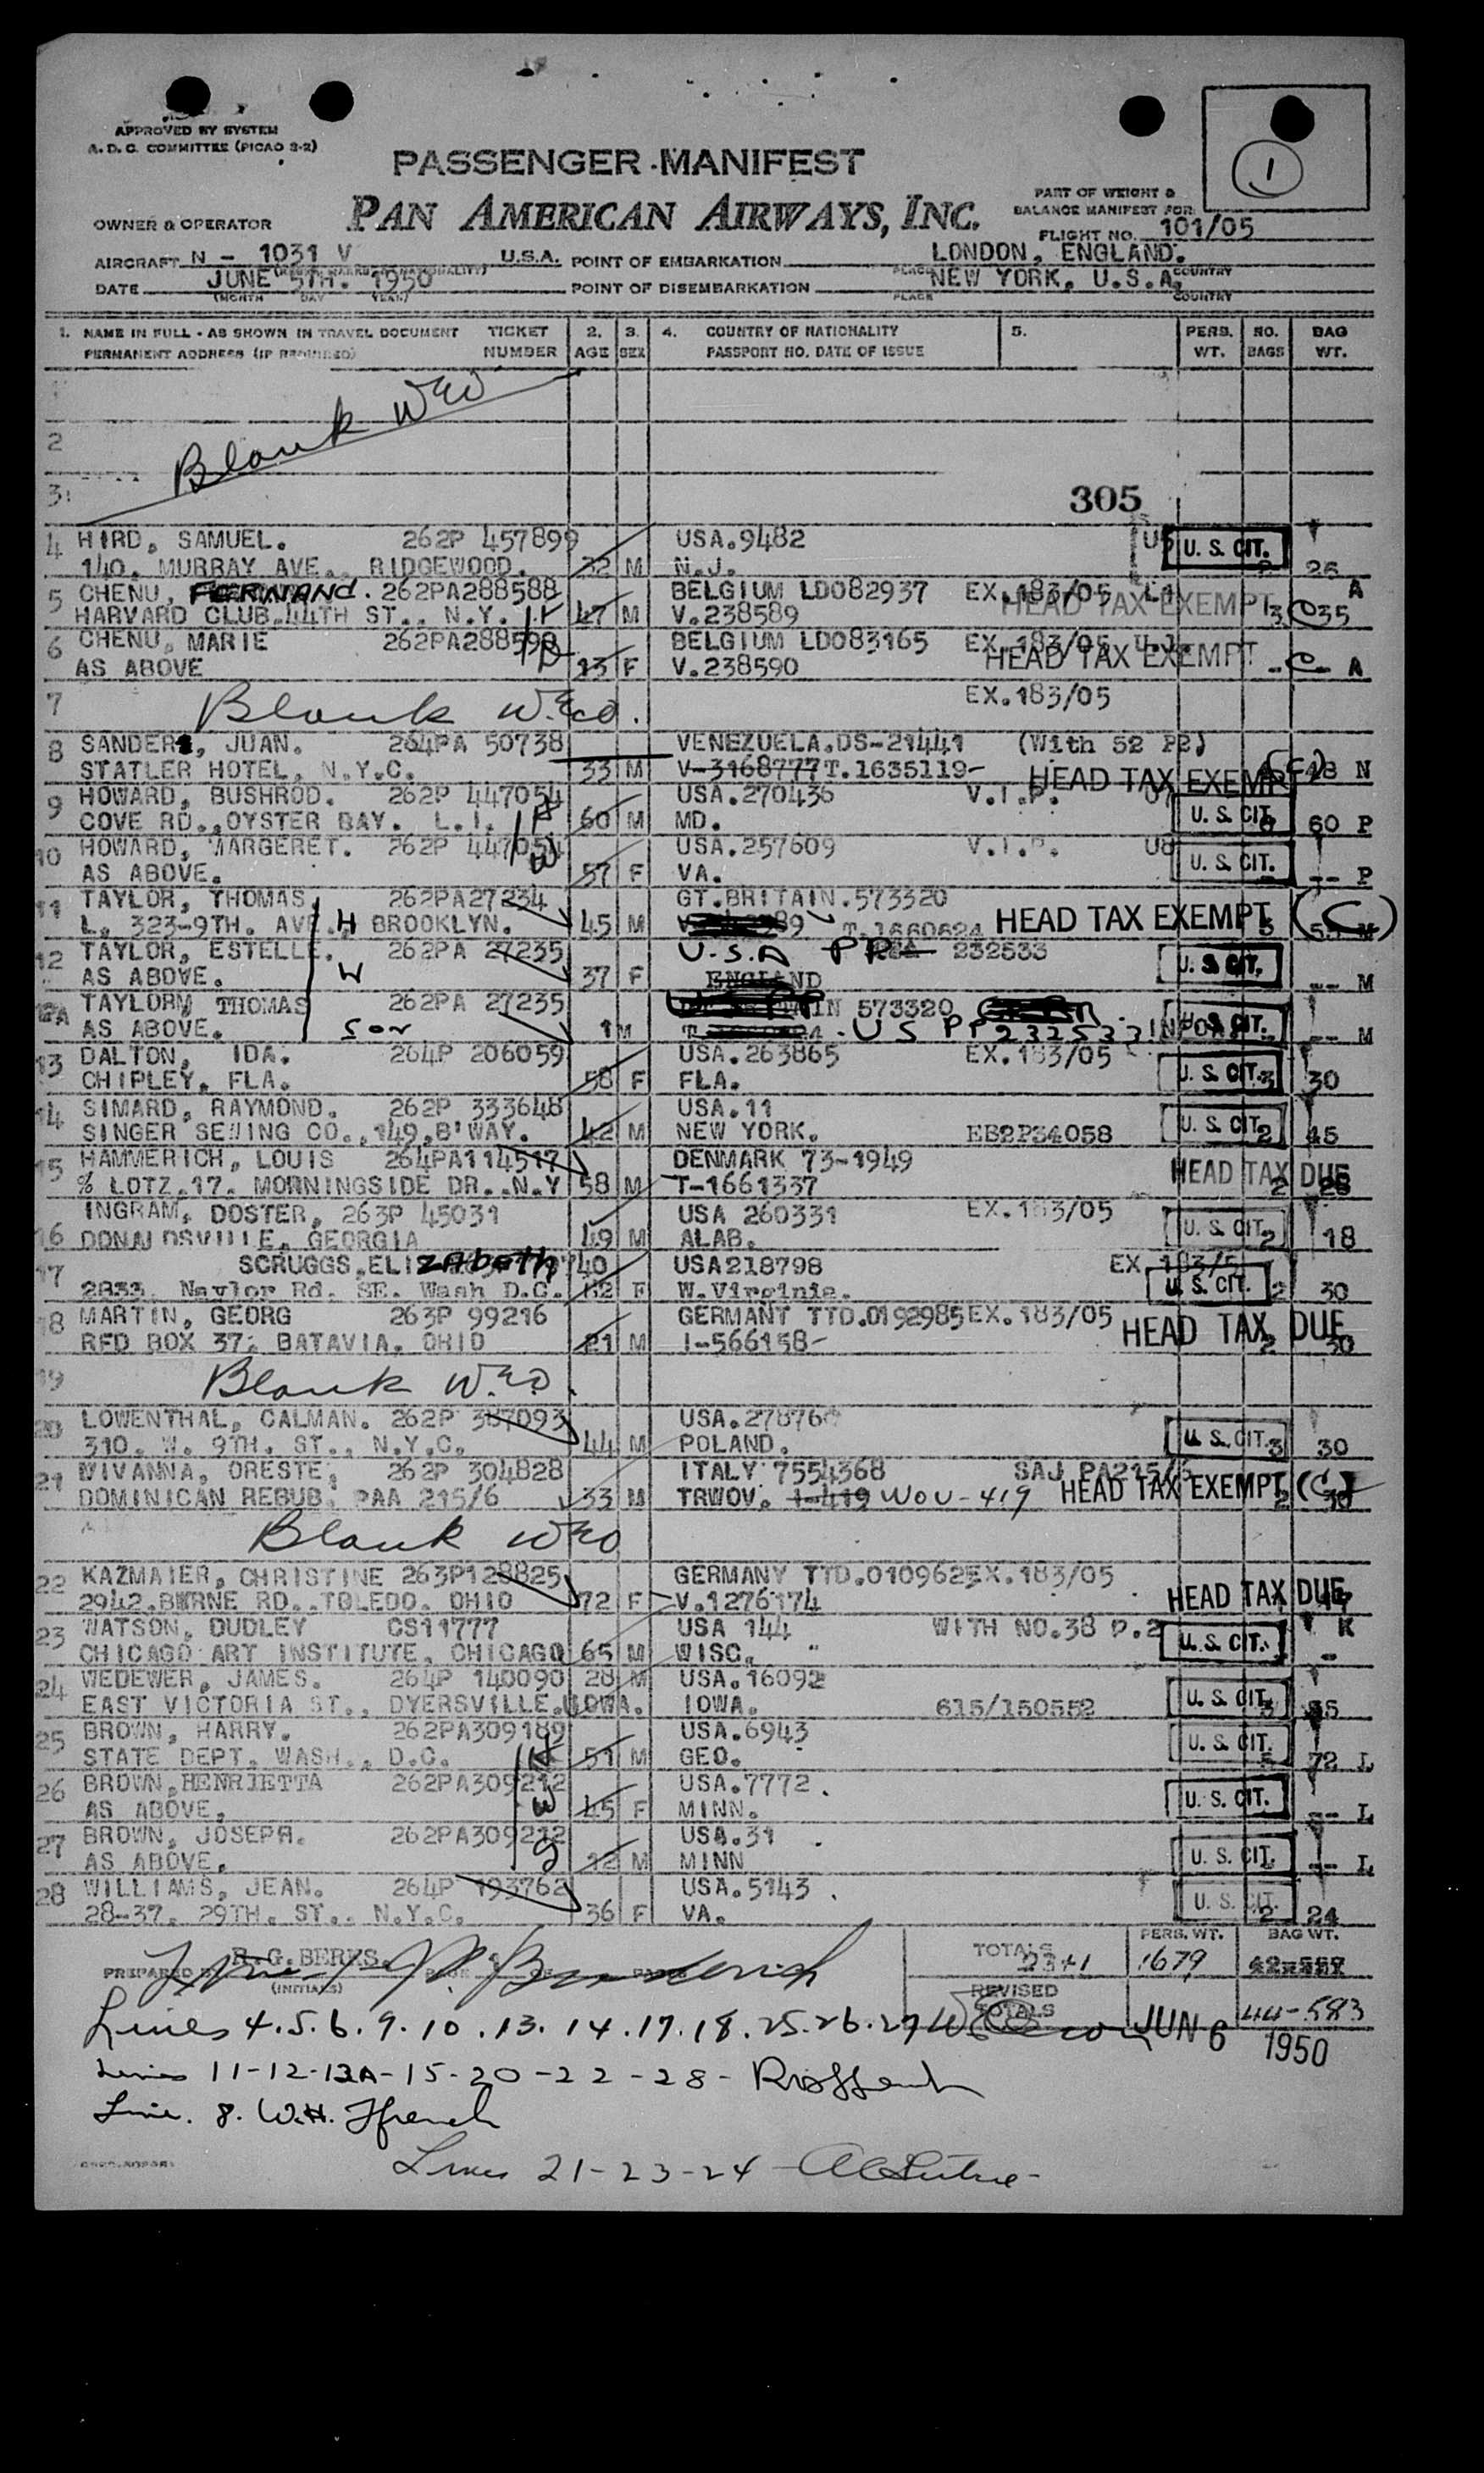 APPROVED BY SYSTEM
A. D. C. COMMITTEE (PICAO 3-2)
1
PASSENGER MANIFEST
PAN AMERICAN AIRWAYS, INC.
PART OF WEIGHT &
BALANCE MANIFEST FOR
FLIGHT NO. 101/05
OWNER & OPERATOR
AIRCRAFT N - 1031 V U.S.A. POINT OF EMBARKATION LONDON, ENGLAND.
DATE JUNE 5TH. 1950 POINT OF DISEMBARKATION NEW YORK, U.S.A.
(MONTH DAY YEAR) PLACE COUNTRY
1. NAME IN FULL - AS SHOWN IN TRAVEL DOCUMENT TICKET 2. 3. 4. COUNTRY OF NATIONALITY 5. PERS. NO. BAG
PERMANENT ADDRESS (IF REQUIRED) NUMBER AGE SEX PASSPORT NO. DATE OF ISSUE WT. BAGS WT.
Blank
2
3
305
4 HIRD, SAMUEL. 262P 457899 USA.9482 U.S. CIT.
140. MURRAY AVE., RIDGEWOOD. 32 M N.J. 26
5 CHENU, FERNAND. 262PA288588 BELGIUM LD082937 EX.183/05 A
HARVARD CLUB.44TH ST., N.Y. 47 M V.238589 HEAD TAX EXEMPT 3 C 35
6 CHENU, MARIE 262PA288590 BELGIUM LD083165 EX.183/05
AS ABOVE 13 F V.238590 HEAD TAX EXEMPT - C - A
7 Blank EX.183/05
8 SANDERS, JUAN. 264PA 50738 VENEZUELA.DS-21441 (With 52 P2)
STATLER HOTEL, N.Y.C. 33 M V-3168777 T.1635119- HEAD TAX EXEMPT (C) 48 N
9 HOWARD, BUSHROD. 262P 447054 USA.270436 V.I.P.
COVE RD.,OYSTER BAY. L.I. H 60 M MD. U.S. CIT. 60 P
10 HOWARD, MARGERET. 262P 447054 USA.257609 V.I.P.
AS ABOVE. W 57 F VA. U.S. CIT. -- P
11 TAYLOR, THOMAS, 262PA27234 GT.BRITAIN.573320
L. 323-9TH. AVE., H BROOKLYN. 45 M T.1660624 HEAD TAX EXEMPT (C)
12 TAYLOR, ESTELLE. 262PA 27235 U.S.A PP 232533
AS ABOVE. W 37 F ENGLAND U.S. CIT. -- M
12A TAYLOR, THOMAS 262PA 27235 573320
AS ABOVE. Son 1 M US PP 232533 U.S. CIT. -- M
13 DALTON, IDA. 264P 206059 USA.263865 EX.183/05
CHIPLEY, FLA. 58 F FLA. U.S. CIT. 3 30
14 SIMARD, RAYMOND. 262P 333648 USA.11
SINGER SEWING CO.,149,B'WAY. 42 M NEW YORK. EB2P34058 U.S. CIT. 2 45
15 HAMMERICH, LOUIS 264PA114517 DENMARK 73-1949
% LOTZ.17. MORNINGSIDE DR..N.Y 58 M T-1661337 HEAD TAX DUE 2
16 INGRAM, DOSTER, 263P 45031 USA 260331 EX.183/05
DONALDSVILLE, GEORGIA 49 M ALAB. U.S. CIT. 2 18
17 SCRUGGS,ELIZABETH 40 USA218798 EX 183/5
2833. Naylor Rd. SE. Wash D.C. F W.Virginia. U.S. CIT. 2 30
18 MARTIN, GEORG 263P 99216 GERMANY TTD.0192985 EX.183/05
RFD BOX 37; BATAVIA, OHIO 21 M I-566158- HEAD TAX DUE 2 30
19 Blank
20 LOWENTHAL, CALMAN. 262P 387093 USA.27876
310. W. 9TH. ST., N.Y.C. 44 M POLAND. U.S. CIT. 3 30
21 NIVANNA, ORESTE, 262P 304828 ITALY 7554368 SAJ PA215/6
DOMINICAN REBUB. PAA 215/6 33 M TRWOV. I-419 WOV-419 HEAD TAX EXEMPT (C)
Blank
22 KAZMAIER, CHRISTINE 263P128825 GERMANY TTD.010962 EX.183/05
2942.BYRNE RD..TOLEDO. OHIO 72 F V.1276174 HEAD TAX DUE
23 WATSON, DUDLEY CS11777 USA 144 WITH NO.38 P.2 K
CHICAGO ART INSTITUTE, CHICAGO 65 M WISC. " U.S. CIT. -
24 WEDEWER, JAMES. 264P 140090 28 M USA.16092
EAST VICTORIA ST., DYERSVILLE. IOWA. IOWA. 615/150552 U.S. CIT. 3
25 BROWN, HARRY. 262PA309189 USA.6943
STATE DEPT. WASH., D.C. H 51 M GEO. U.S. CIT. 72 L
26 BROWN,HENRIETTA 262PA309212 USA.7772.
AS ABOVE, W 45 F MINN. U.S. CIT. -- L
27 BROWN, JOSEPH. 262PA309212 USA.31
AS ABOVE, S 12 M MINN U.S. CIT. -- L
28 WILLIAMS, JEAN. 264P 193762 USA.5143.
28-37. 29TH. ST., N.Y.C. 36 F VA. U.S. CIT. 2 24
R.G.BERKS.
PREPARED BY (INITIALS) TOTALS 23+1 PERS. WT. 1679 BAG WT.
REVISED TOTALS 44-583
Lines 4.5.6.9.10.13.14.17.18.25.26.27 JUN 6 1950
Lines 11-12-12A-15-20-22-28-
Line. 8. W.H. Ffrench
Lines 21-23-24-